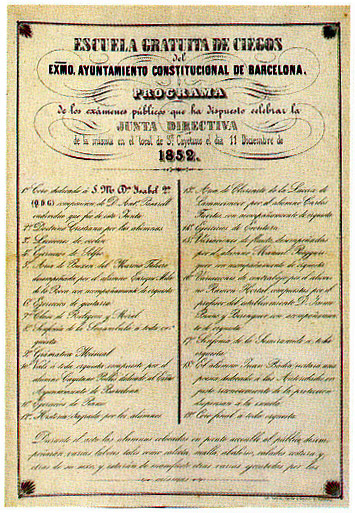 ESCUELA GRATUITA DE CIEGOS
del
EXMO. AYUNTAMIENTO CONSTITUCIONAL DE BARCELONA.
PROGRAMA
de los exámenes públicos que ha dispuesto celebrar la
JUNTA DIRECTIVA
de la misma en el local de Sn. Cayetano el dia 11 Diciembre de
1852.
1º Coro dedicado á S.M. Dª Isabel 2ª
(Q.D.G)
2º Doctrina Cristiana por los alumnos
3º Lecciones de
4º Ejercicios de Solfeo
desempeñada por el alumno
con acompañamiento de orquesta
6º Ejercicios de guitarra
7º Clase de Religion y Moral
8º Sinfonia de la Sonambula á toda or-
questa
9º Gramática Musical
10º Vals á toda orquesta compuesto por el
alumno Cayetano dedicado al Exmo
Ayuntamiento de Barcelona
11º Ejercicios de Piano
12º Historia Sagrada por los alumnos
13º Aria de Clarinete de la Lucia de
Lammermoor por el alumno Carlos
con acompañamiento de orquesta
14º Ejercicios de Escritura
15º Variaciones de flauta, desempeñadas
por el alumno Manuel
con acompañamiento de orquesta
16º Variaciones de por el alum-
no Ramon compuestas por el
profesor del establecimiento D. Jaime
y con acompañamien-
to de orquesta
17º Sinfonia de la Semiramis á toda
orquesta
18º El alumno Juan recitará una
poesia dedicada á las Autoridades en
reconocimiento de la proteccion
dispensan á la escuela
19º Coro final á toda orquesta
Durante el acto los alumnos colocados en punto accesible al público, desem-
peñarán varias labores tales como calceta, malla, y
otras de su sexo, y estarán de manifiesto otras varias ejecutadas por los
mismos